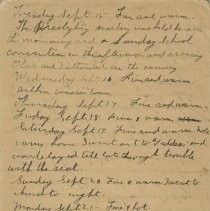 Tuesday Sept. 15 Fine and warm
The Presbytery meeting was held here in
the morning and a Sunday school
convention in the afternoon and evening
Olive and I at in the evening
Wednesday Sept 16 Fine and warm
Arthur was in town
Thursday Sept 17 Fine and warm
Friday Sept 18 Fine & warm
Saturday Sept 19. Fine and warm
came home I went out to and
had trouble
with the seat.
Sunday Sept 20 Fine & warm I went to
church to night
Monday Sept 21 - Fine & hot